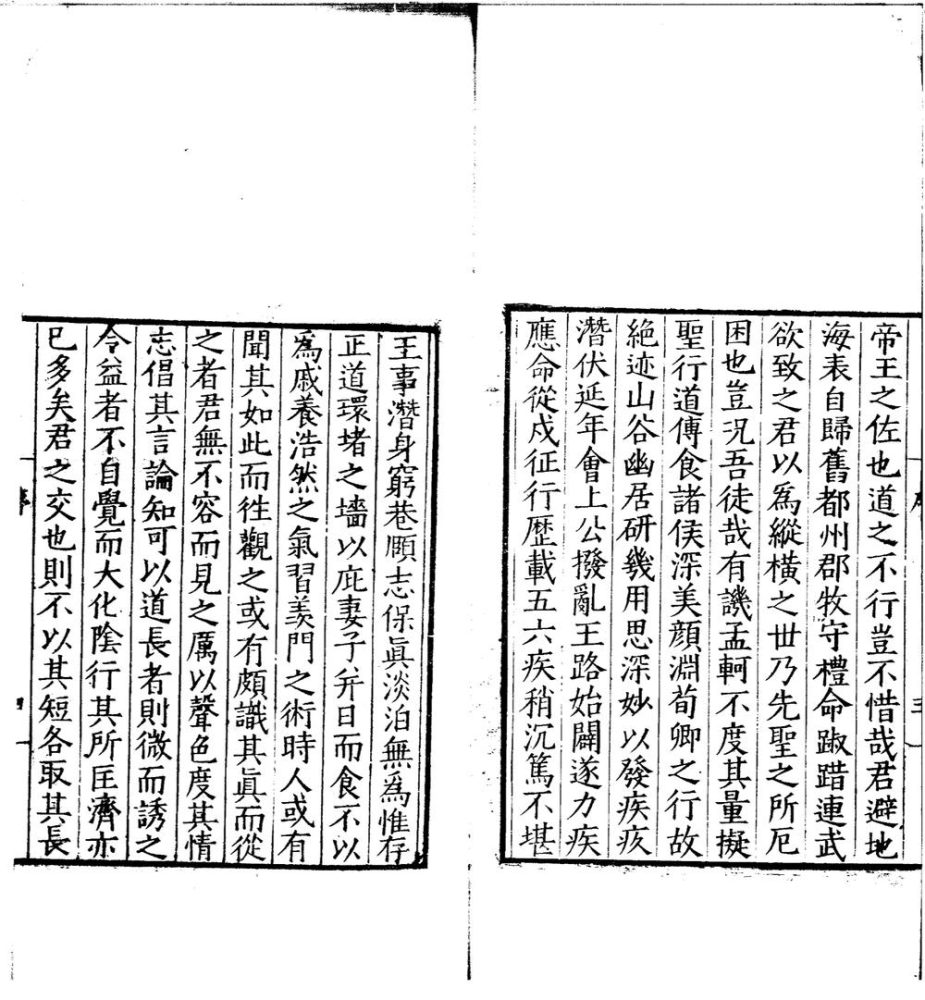 帝王之佐也道之不行豈不惜哉君避地
海表自歸舊都州郡牧守禮命踧踖連武
欲致之君以爲縱橫之世乃先聖之所厄
困也豈況吾徒哉有譏孟軻不度其量擬
聖行道傳食諸侯深美顔淵荀卿之行故
絶迹山谷幽居研幾用思深妙以發疾疢
潛伏延年會上公撥亂王路始闢遂力疾
應命從戍征行歷載五六疾稍沉篤不堪
王事潛身窮巷頤志保眞淡泊無爲惟存
正道環堵之墻以庇妻子幷日而食不以
爲戚養浩然之氣習羨門之術時人或有
聞其如此而徃觀之或有頗識其眞而從
之者君無不容而見之厲以聲色度其情
志倡其言論知可以道長者則微而誘之
令益者不自覺而大化陰行其所匡濟亦
已多矣君之交也則不以其短各取其長